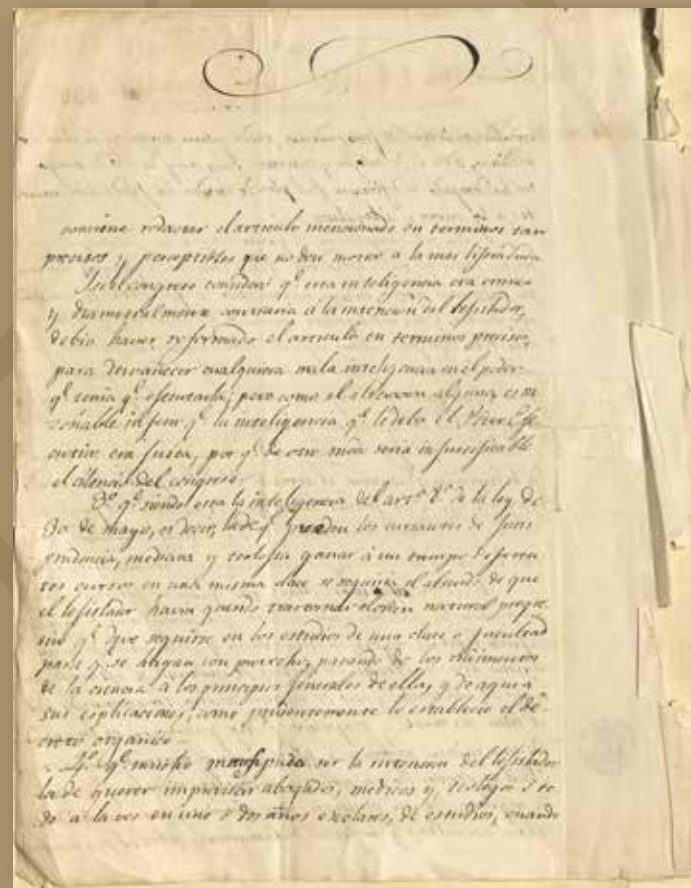 conviene redactar el articulo mencionado en terminos tan
precisos y perceptibles que no den motivo a la mas
Si el congreso consideró qe esa inteligencia era
y diametralmente contraria á la intencion del lejislador,
debió haver reformado el articulo en terminos precisos,
para desvanecer cualquiera mala inteligencia en el poder
qe tenia qe ejecutarla; pero como
inferir qe la inteligencia qe le daba el Poder Eje
cutivo era justa, por qe de otro modo seria injustificable
el silencio del congreso
3o qe siendo esta la inteligencia del arto 8o de la ley de
30 de mayo, es decir, la de qe pueden los cursantes de Juris
prudencia, medicina y teolojia ganar á un tiempo diferen
tes cursos en una misma clase se seguiria el absurdo de que
el lejislador havia querido trastornar el orden natural progre
sivo qe deve seguirse en los estudios de una clase o facultad
para qe se hagan con provecho, pasando de los rudimentos
de la ciencia á los principios jenerales de ella, y de aqui a
sus esplicaciones, como lo establecio el de
creto organico
4o qe ser la intencion del lejislador
la de querer improvisar abogados, medicos y teologos
á la vez en uno o dos años escolares, de estudios, cuando